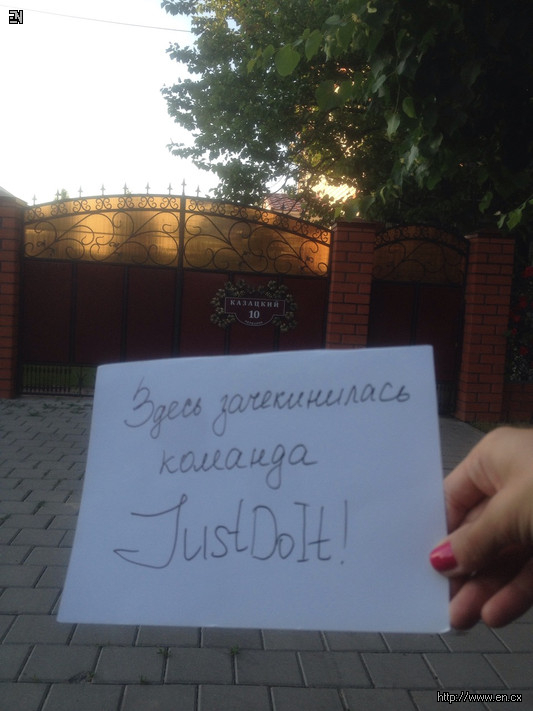 EN
КАЗАЦКИЙ
10
Здесь зачекинилась
команда
JustDoIt!
http://www.en.cx